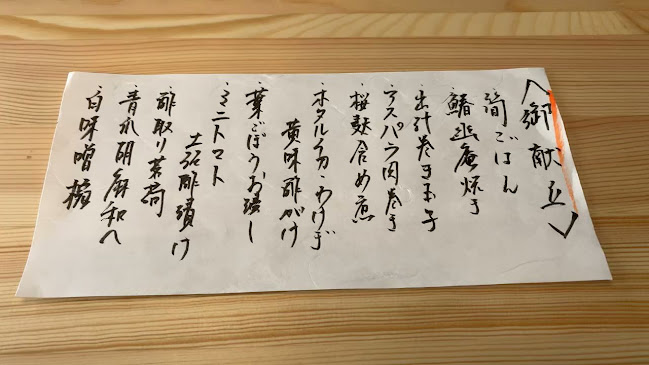 〈御献立〉
・筍ごはん
・鰆幽庵焼き
・出汁巻き玉子
・アスパラ肉巻き
・桜麩含め煮
・ホタルイカ・わけぎ
黄味酢がけ
・葉ごぼうお浸し
・ミニトマト
土佐酢漬け
・酢取り茗荷
胡麻和へ
・白味噌椀